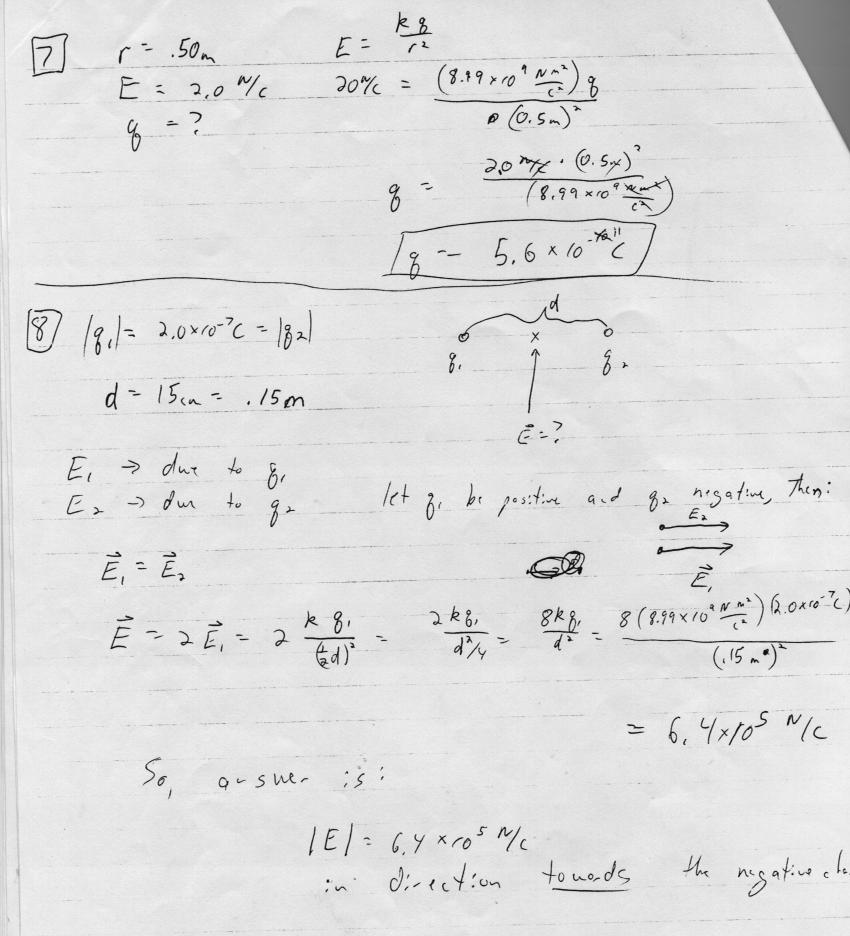 7 r = .50m E = kq/r²
E = 2.0 N/C 20 N/C = (8.99×10⁹ Nm²/C²) q / (0.5m)²
q = ?
q = 2.0 N/C · (0.5m)² / (8.99×10⁹ Nm²/C²)
q = 5.6 × 10⁻¹¹ C
8 |q₁| = 2.0×10⁻⁷C = |q₂| d
q₁ × q₂
d = 15cm = .15m
E⃗ = ?
E₁ → due to q₁
E₂ → due to q₂ let q₁ be positive and q₂ negative, then:
E₂
E⃗₁ = E⃗₂ E⃗₁
E⃗ = 2E⃗₁ = 2 kq₁/(½d)² = 2kq₁/d²/4 = 8kq₁/d² = 8(8.99×10⁹ Nm²/C²)(2.0×10⁻⁷C)/(.15m)²
= 6.4×10⁵ N/C
So, answer is:
|E| = 6.4×10⁵ N/C
in direction towards the negative